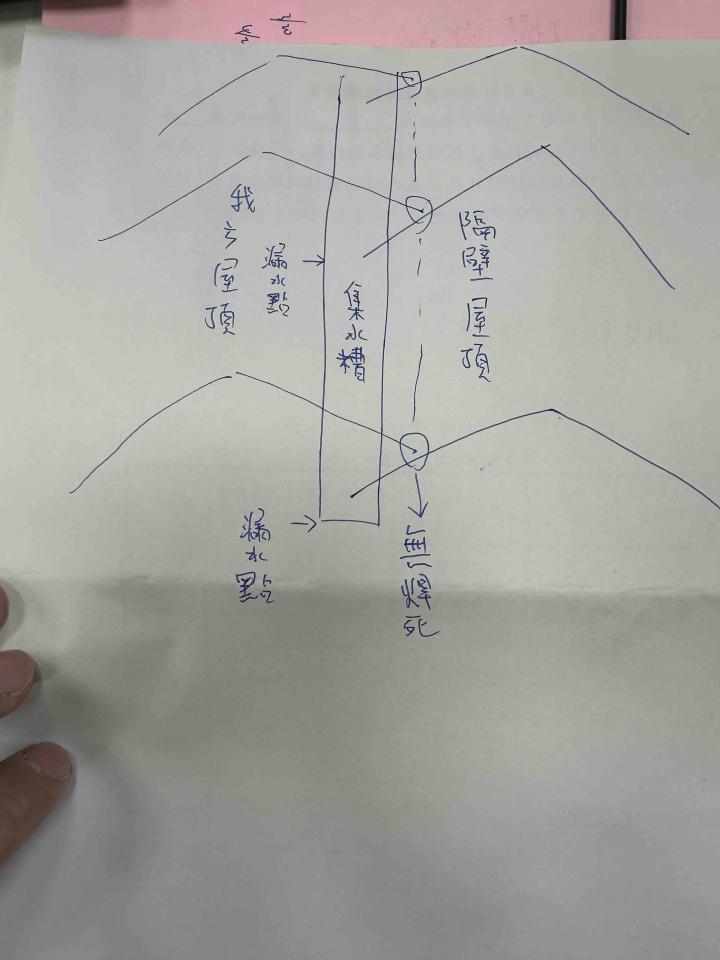 我方屋頂
漏水點
集水槽
隔壁屋頂
漏水點
無焊死